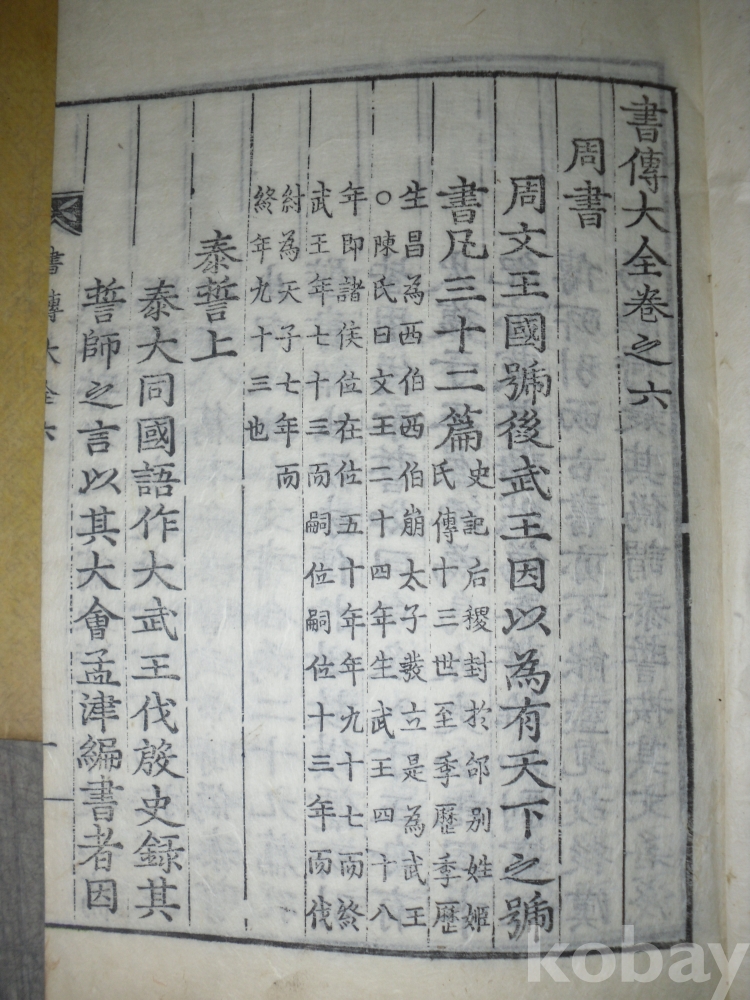 書傳大全卷之六
周書
周文王國號後武王因以為有天下之號
書凡三十二篇史記后稷封於邰别姓姬
氏傳十三世至季歷季歷
生昌為西伯西伯崩太子發立是為武王
○陳氏曰文王二十四年生武王四十八
年即諸侯位在位五十年年九十七而終
武王年七十三而嗣位嗣位十三年而伐
紂為天子七年而
終年九十三也
泰誓上
泰大同國語作大武王伐殷史錄其
誓師之言以其大會孟津編書者因
書傳大全六 一
kobay